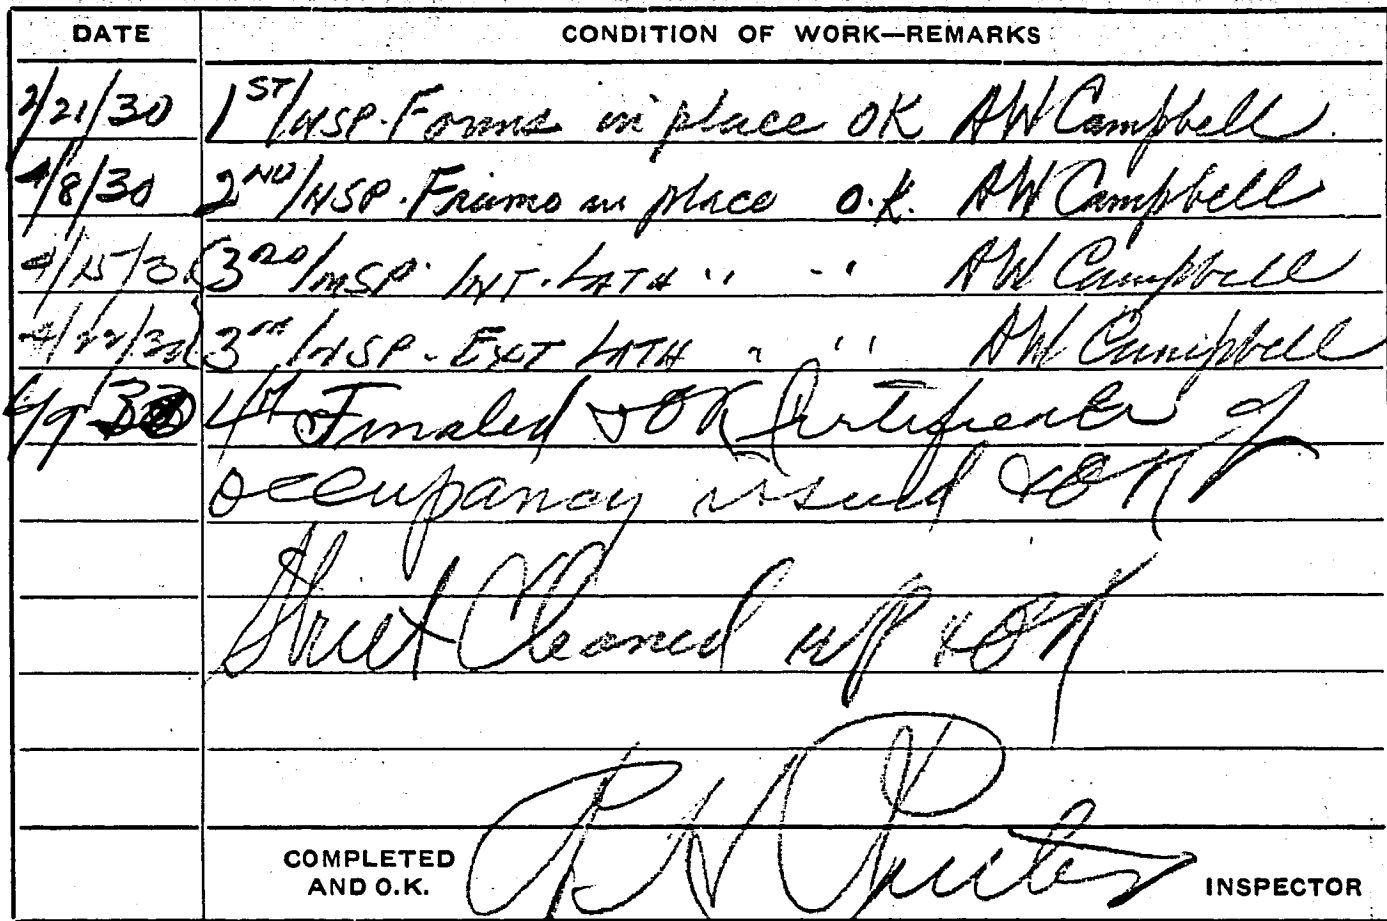 DATE CONDITION OF WORK—REMARKS
2/21/30 1ST INSP. Forms in place OK AW Campbell
4/8/30 2ND INSP. Frame in place O.K. AW Campbell
4/15/30 3RD INSP. INT. LATH " " AW Campbell
4/22/30 3RD INSP. EXT LATH " " AW Campbell
6/9 30 4th Finaled & OK Certificate of
occupancy issued & OK
Street Cleaned up & OK
COMPLETED
AND O.K. R H INSPECTOR